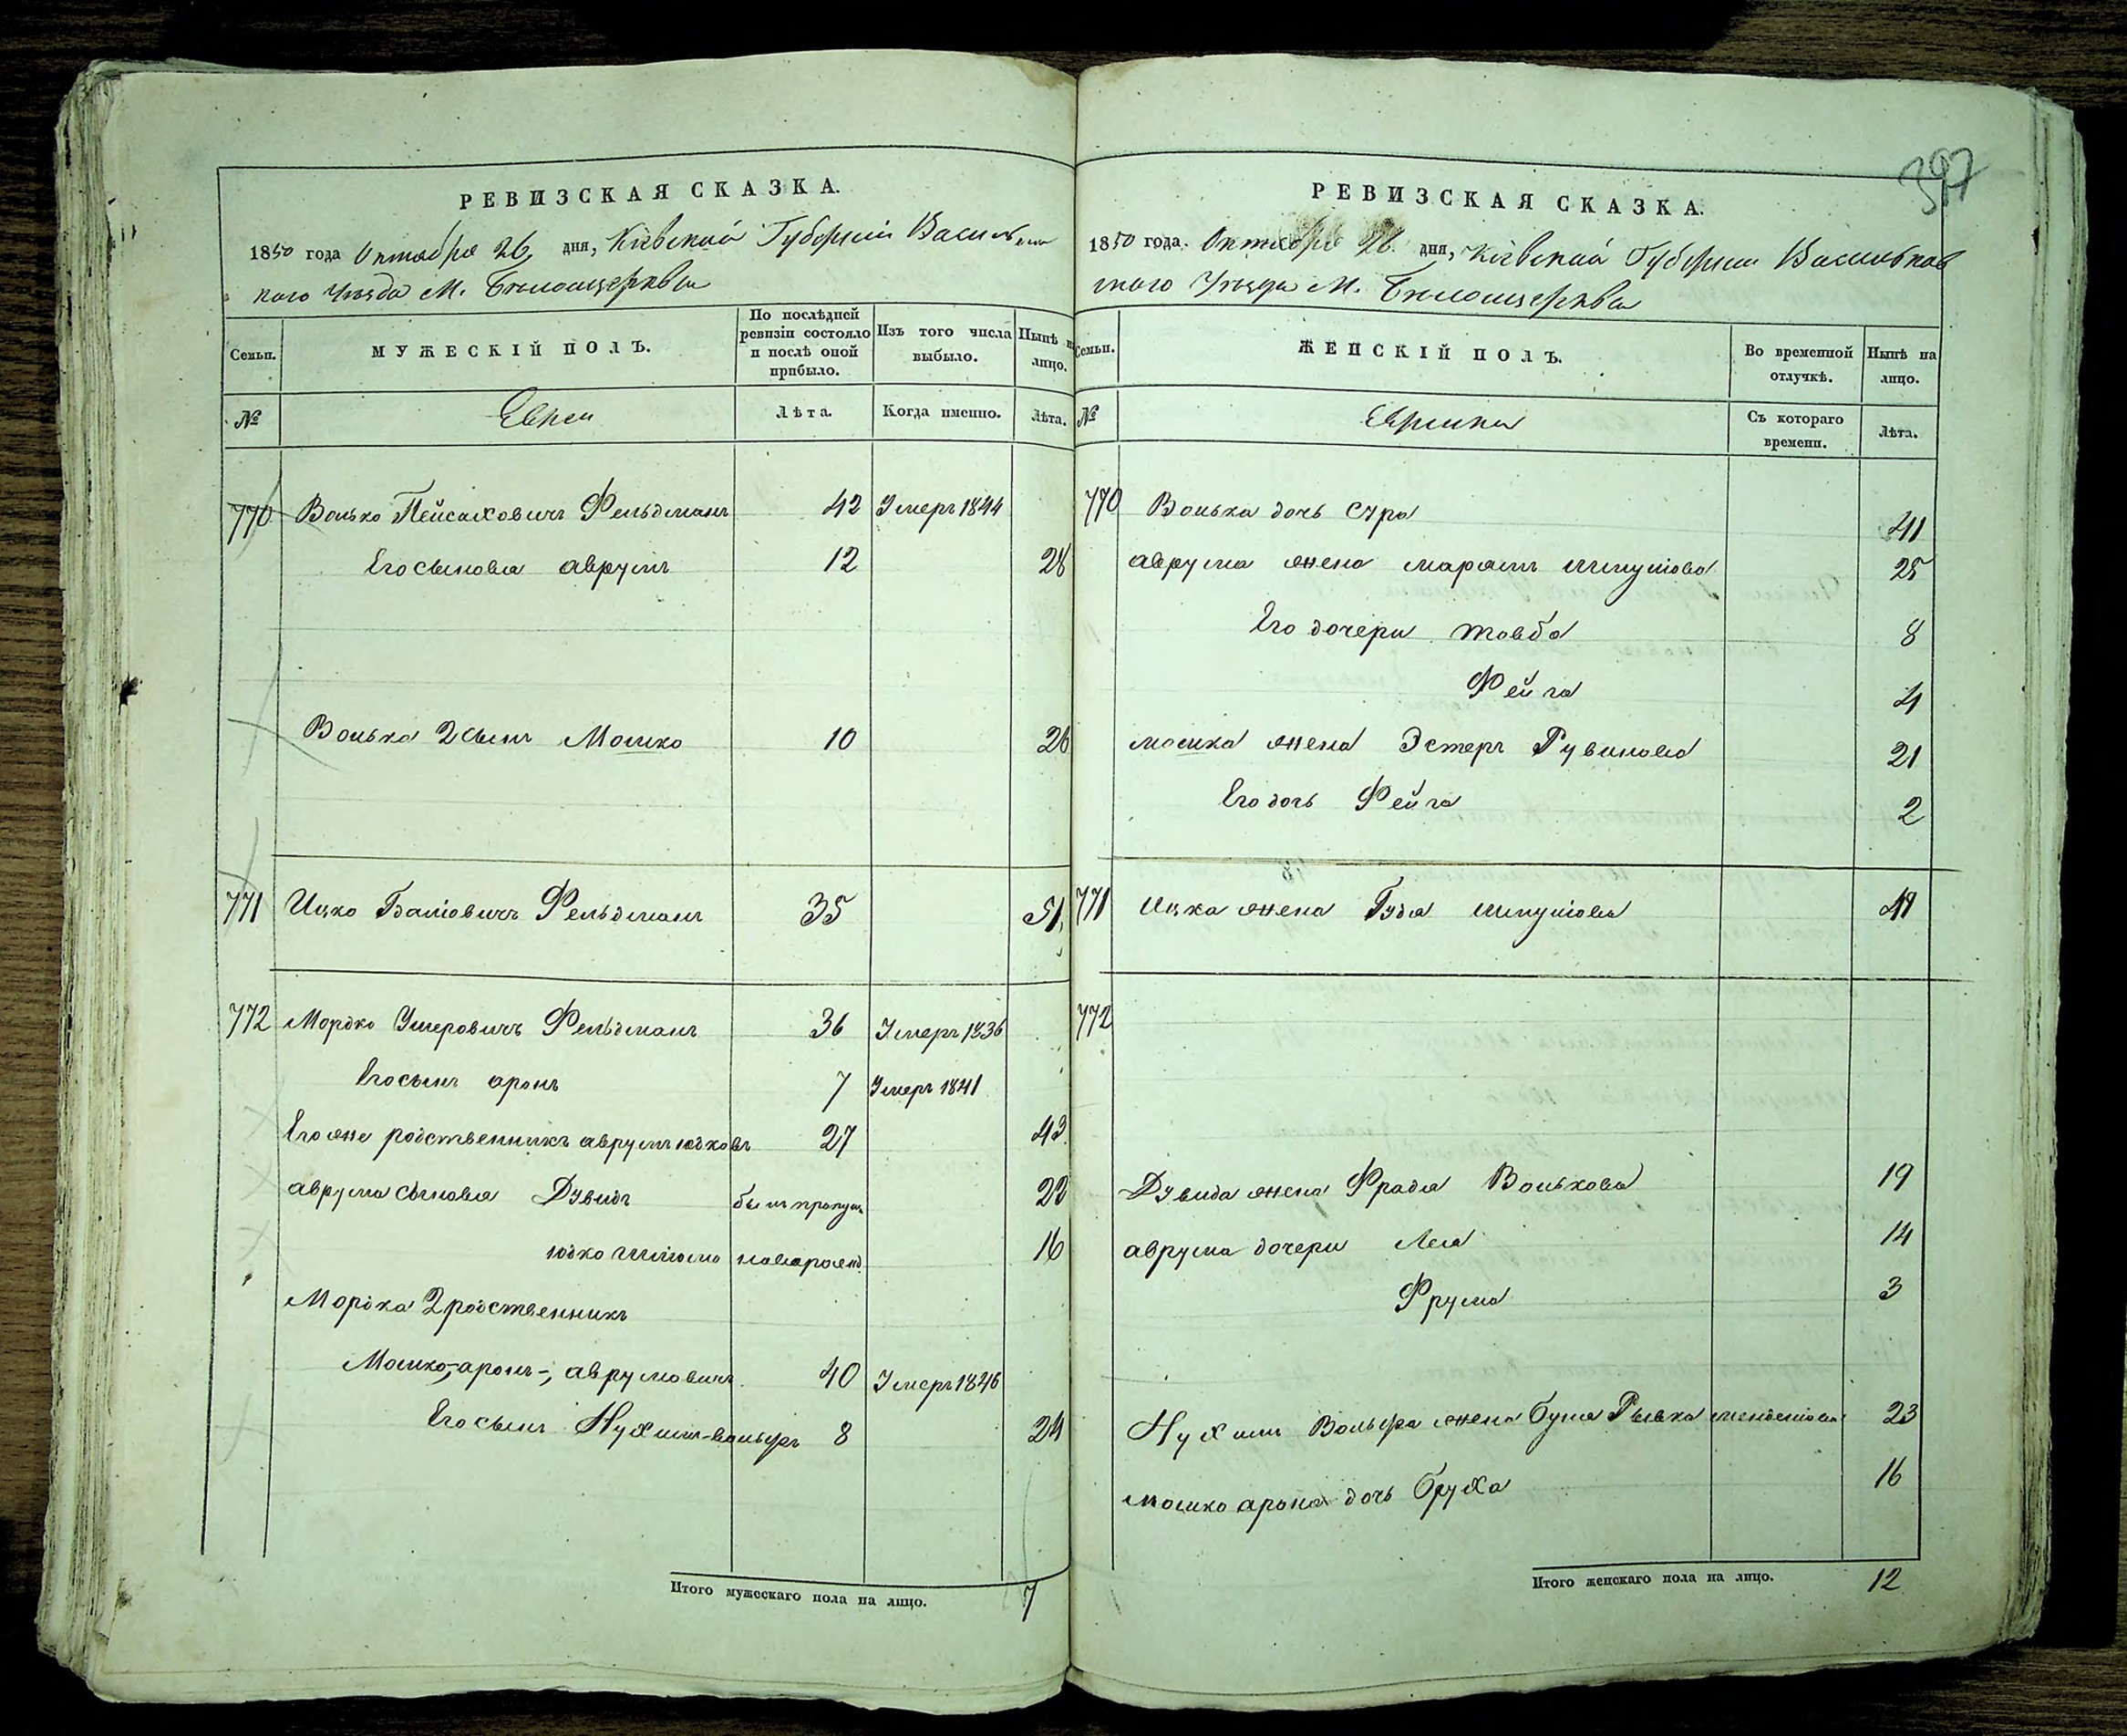 397
РЕВИЗСКАЯ СКАЗКА.
1850 года Октября 26, дня, Кіевской Губерніи Васильков
скаго Уѣзда М. Бѣлоцеркви
Семьи.
МУЖЕСКІЙ ПОЛЪ.
По послѣдней ревизіи состояло и послѣ оной прибыло.
Изъ того числа выбыло.
Нынѣ на лицо.
№
Евреи
Лѣта.
Когда именно.
Лѣта.
770 Волько Пейсаховичъ Фельдманъ 42 Умеръ 1844
Его сыновья аврумъ 12 28
Волька 2 сынъ Мошко 10 26
771 Ицко Баліовичъ Фельдманъ 35 51
772 Мордко Умеровичъ Фельдманъ 36 Умеръ 1836
Его сынъ аронъ 7 Умеръ 1841
Его же родственникъ аврумъ юдковъ 27 43
аврума сыновья Дувидъ былъ пропущ 22
юдко шліома новорожд. 16
Мордка 2 родственникъ
Мошко-аронъ-аврумовичъ 40 Умеръ 1846
Его сынъ Нухим-вольфъ 8 24
Итого мужескаго пола на лицо. 7
РЕВИЗСКАЯ СКАЗКА.
1850 года. Октября 26. дня, Кіевской Губерніи Васильков
скаго Уѣзда М. Бѣлоцеркви
Семьи.
ЖЕНСКІЙ ПОЛЪ.
Во временной отлучкѣ.
Нынѣ на лицо.
№
Еврейки
Съ котораго времени.
Лѣта.
770 Волька дочь сура 41
аврума жена марямъ шмулiова 25
Его дочери товба 8
Фейга 4
мошка жена Эстеръ Рувинова 21
Его дочь Фейга 2
771 Ицка жена Гудя шмулiова 49
772
Дувида жена Фрадя Волькова 19
аврума дочери Лея 14
Фрума 3
Нухим Вольфа жена буня Рывка менделiова 23
мошко арона дочь бруха 16
Итого женскаго пола на лицо. 12